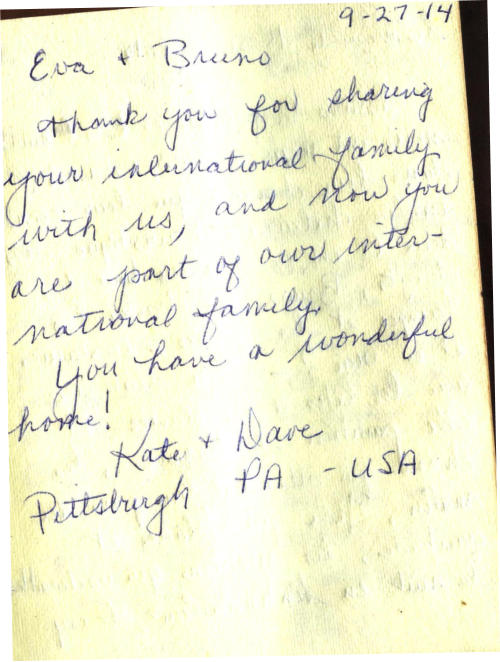 9-27-14
Eva + Bruno
thank you for sharing
your international family
with us, and now you
are part of our inter-
national family.
You have a wonderful
home!
Kate + Dave
Pittsburgh PA - USA